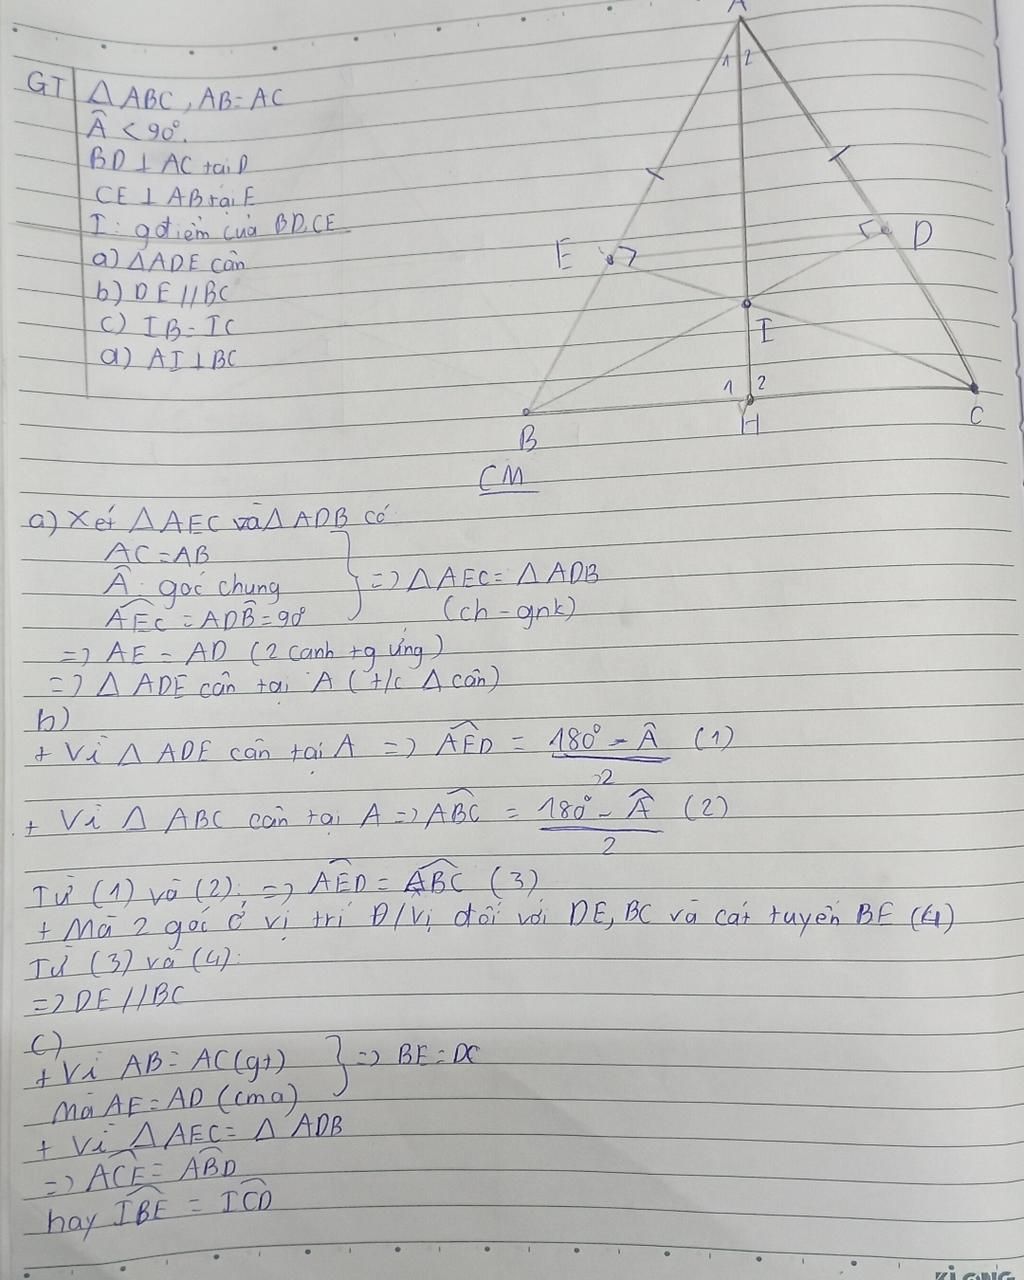 A
1 2
GT
Δ ABC, AB = AC
Â < 90°.
BD ⊥ AC tại D
CE ⊥ AB tại E
I: gđiểm của BD, CE
a) ΔADE cân
b) DE // BC
c) IB = IC
d) AI ⊥ BC
E
D
I
1 2
B
H
C
CM
a) Xét Δ AEC và Δ ADB có
AC = AB
Â: góc chung
AEC = ADB = 90°
=> Δ AEC = Δ ADB
(ch - gnk)
=> AE = AD (2 cạnh t/g ứng)
=> Δ ADE cân tại A (t/c Δ cân)
b)
+ Vì Δ ADE cân tại A => AED = 180° - Â / 2 (1)
+ Vì Δ ABC cân tại A => ABC = 180° - Â / 2 (2)
Từ (1) và (2): => AED = ABC (3)
+ Mà 2 góc ở vị trí Đ/Vị đối với DE, BC và cát tuyến BE (4)
Từ (3) và (4):
=> DE // BC
c)
+ Vì AB = AC (gt)
Mà AE = AD (cma)
=> BE = DC
+ Vì Δ AEC = Δ ADB
=> ACE = ABD
hay IBE = ICD